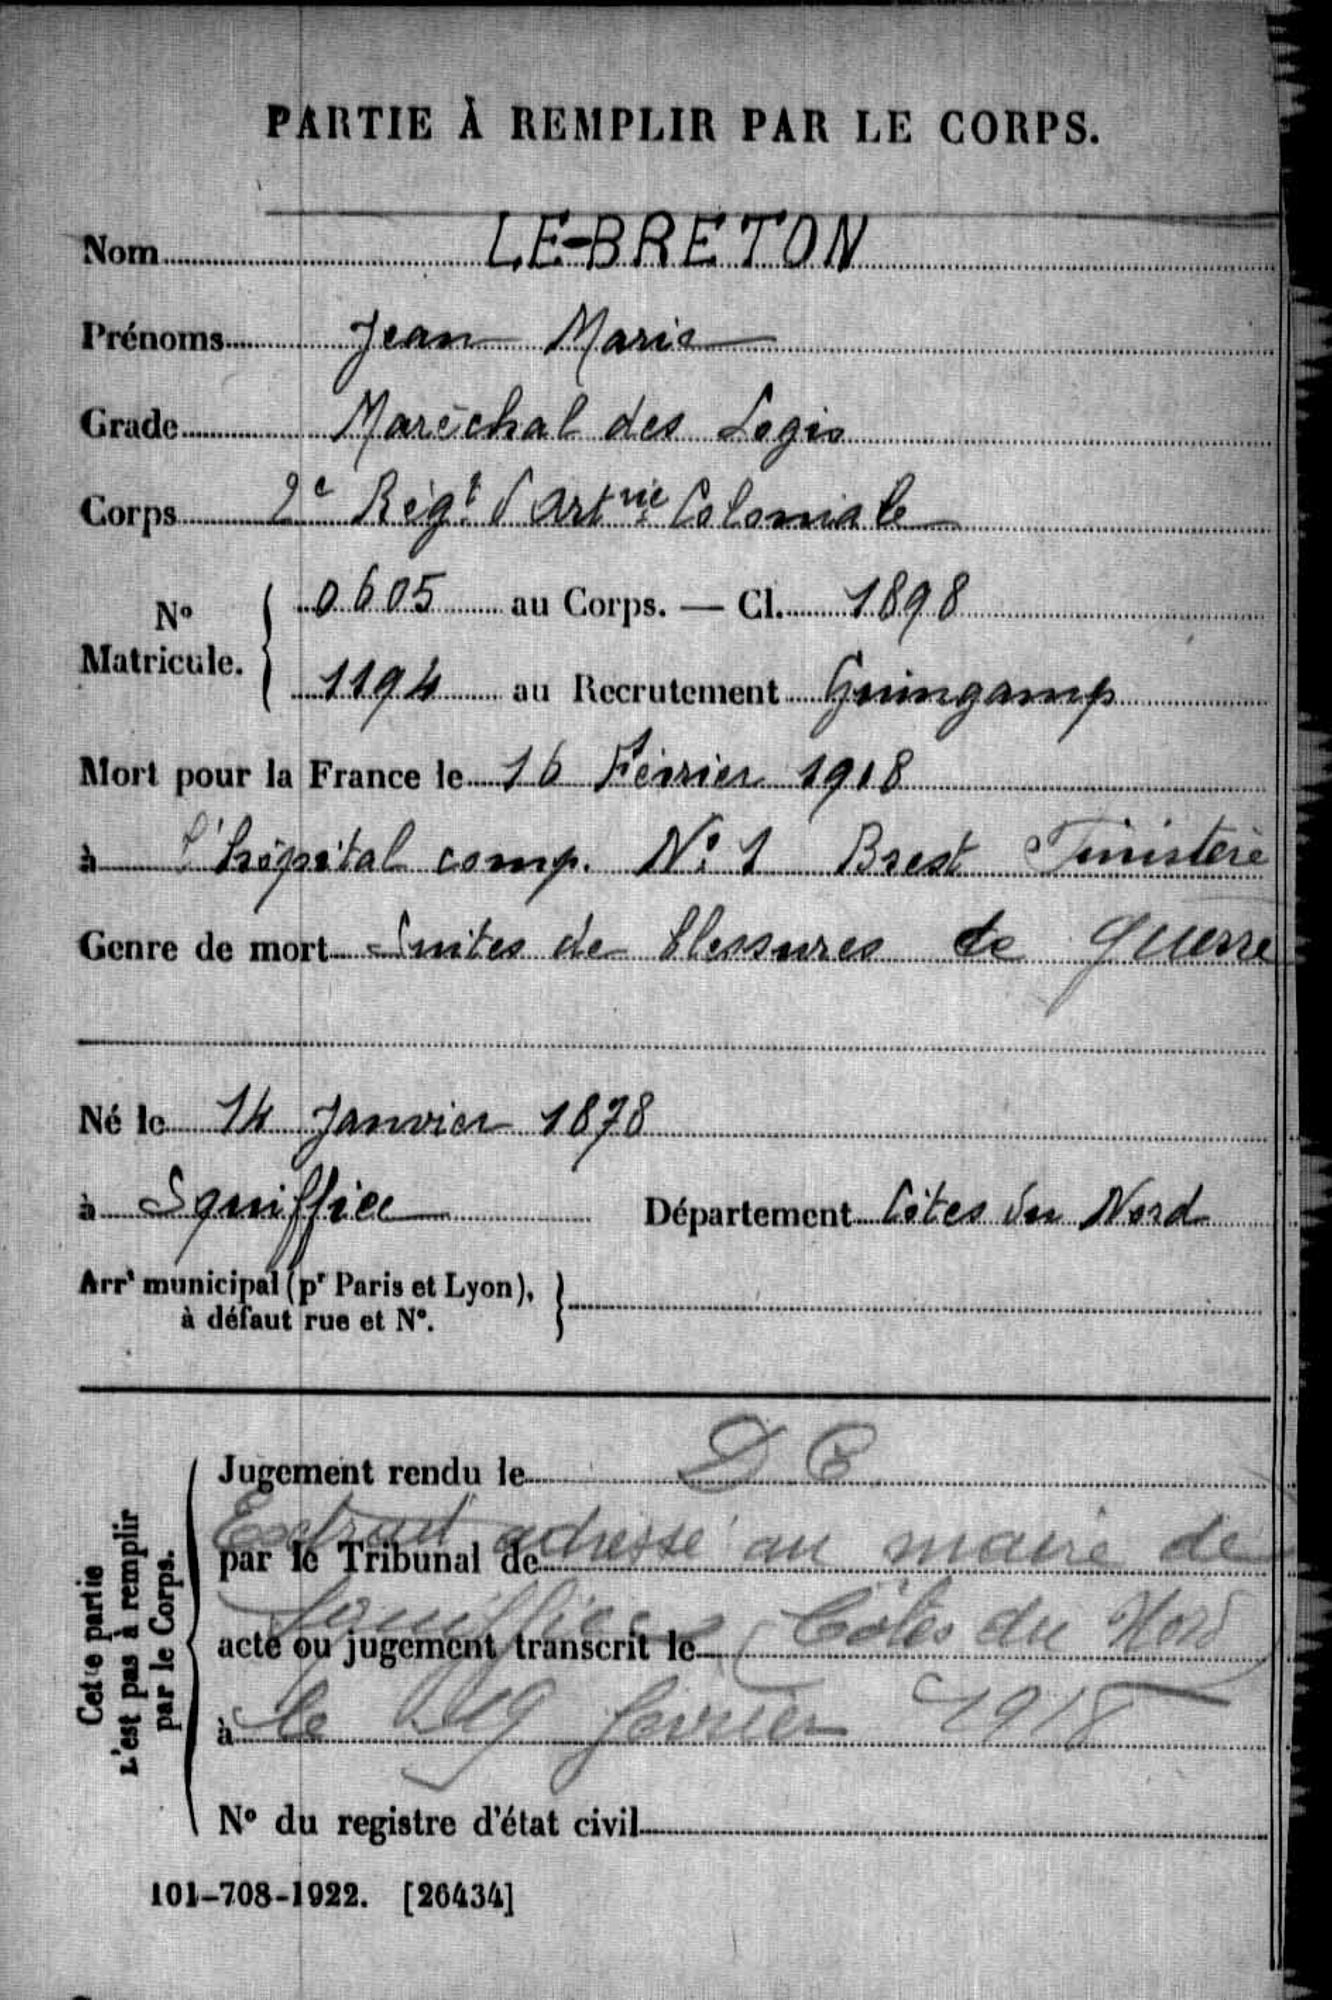 PARTIE À REMPLIR PAR LE CORPS.
Nom LE-BRETON
Prénoms Jean Marie
Grade Maréchal des Logis
Corps 2e Régt d'Artrie Coloniale
N° Matricule. 0605 au Corps. — Cl. 1898
1194 au Recrutement Guingamp
Mort pour la France le 16 Février 1918
à l'hôpital comp. N° 1 Brest Finistère
Genre de mort Suites de blessures de guerre
Né le 14 Janvier 1878
à Squiffiec Département Côtes du Nord
Arrt municipal (pr Paris et Lyon),
à défaut rue et N°.
Cette partie
n'est pas à remplir
par le Corps.
Jugement rendu le DC
Extrait adressé au maire de
par le Tribunal de
Squiffiec (Côtes du Nord)
acte ou jugement transcrit le
à le 19 février 1918
N° du registre d'état civil
101-708-1922. [26434]